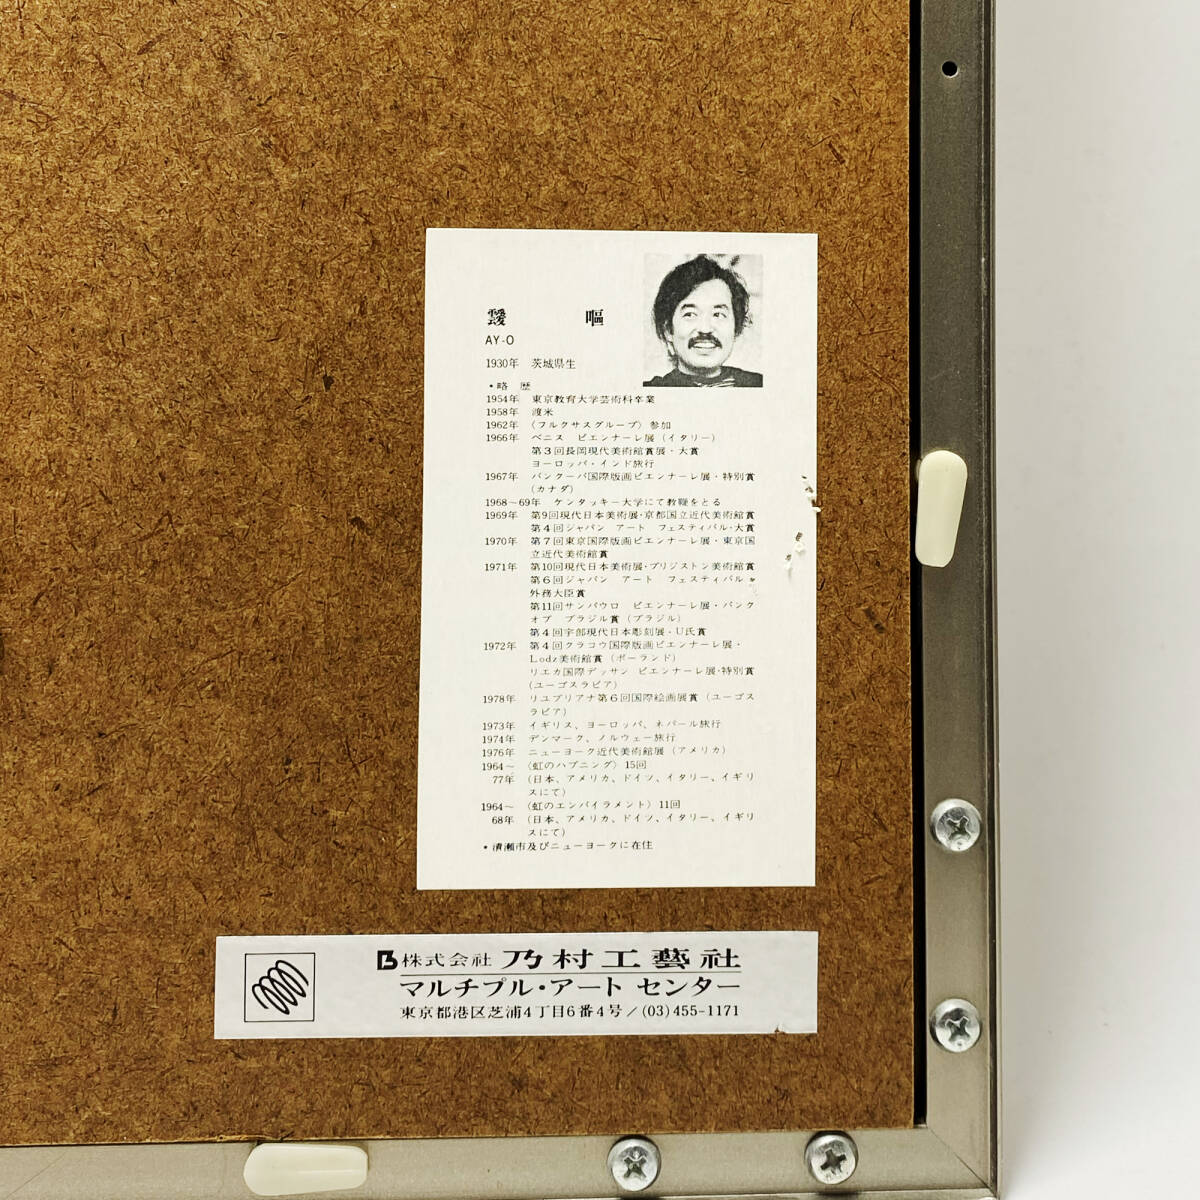 靉嘔
AY-O
1930年 茨城県生
・略 歴
1954年 東京教育大学芸術科卒業
1958年 渡米
1962年 〈フルクサスグループ〉参加
1966年 ベニス ビエンナーレ展（イタリー）
第3回長岡現代美術館賞展・大賞
ヨーロッパ・インド旅行
1967年 バンクーバ国際版画ビエンナーレ展・特別賞
（カナダ）
1968～69年 ケンタッキー大学にて教鞭をとる
1969年 第9回現代日本美術展・京都国立近代美術館賞
第4回ジャパン アート フェスティバル・大賞
1970年 第7回東京国際版画ビエンナーレ展・東京国
立近代美術館賞
1971年 第10回現代日本美術展・ブリジストン美術館賞
第6回ジャパン アート フェスティバル・
外務大臣賞
第11回サンパウロ ビエンナーレ展・バンク
オブ ブラジル賞（ブラジル）
第4回宇部現代日本彫刻展・U氏賞
1972年 第4回クラコウ国際版画ビエンナーレ展・
Lodz美術館賞（ポーランド）
リエカ国際デッサン ビエンナーレ展・特別賞
（ユーゴスラビア）
1978年 リユブリアナ第6回国際絵画展賞（ユーゴス
ラビア）
1973年 イギリス、ヨーロッパ、ネパール旅行
1974年 デンマーク、ノルウェー旅行
1976年 ニューヨーク近代美術館展（アメリカ）
1964～ 〈虹のハプニング〉15回
77年 （日本、アメリカ、ドイツ、イタリー、イギリ
スにて）
1964～ 〈虹のエンバイラメント〉11回
68年 （日本、アメリカ、ドイツ、イタリー、イギリ
スにて）
・清瀬市及びニューヨークに在住
株式会社 乃村工藝社
マルチプル・アート センター
東京都港区芝浦4丁目6番4号／(03)455-1171